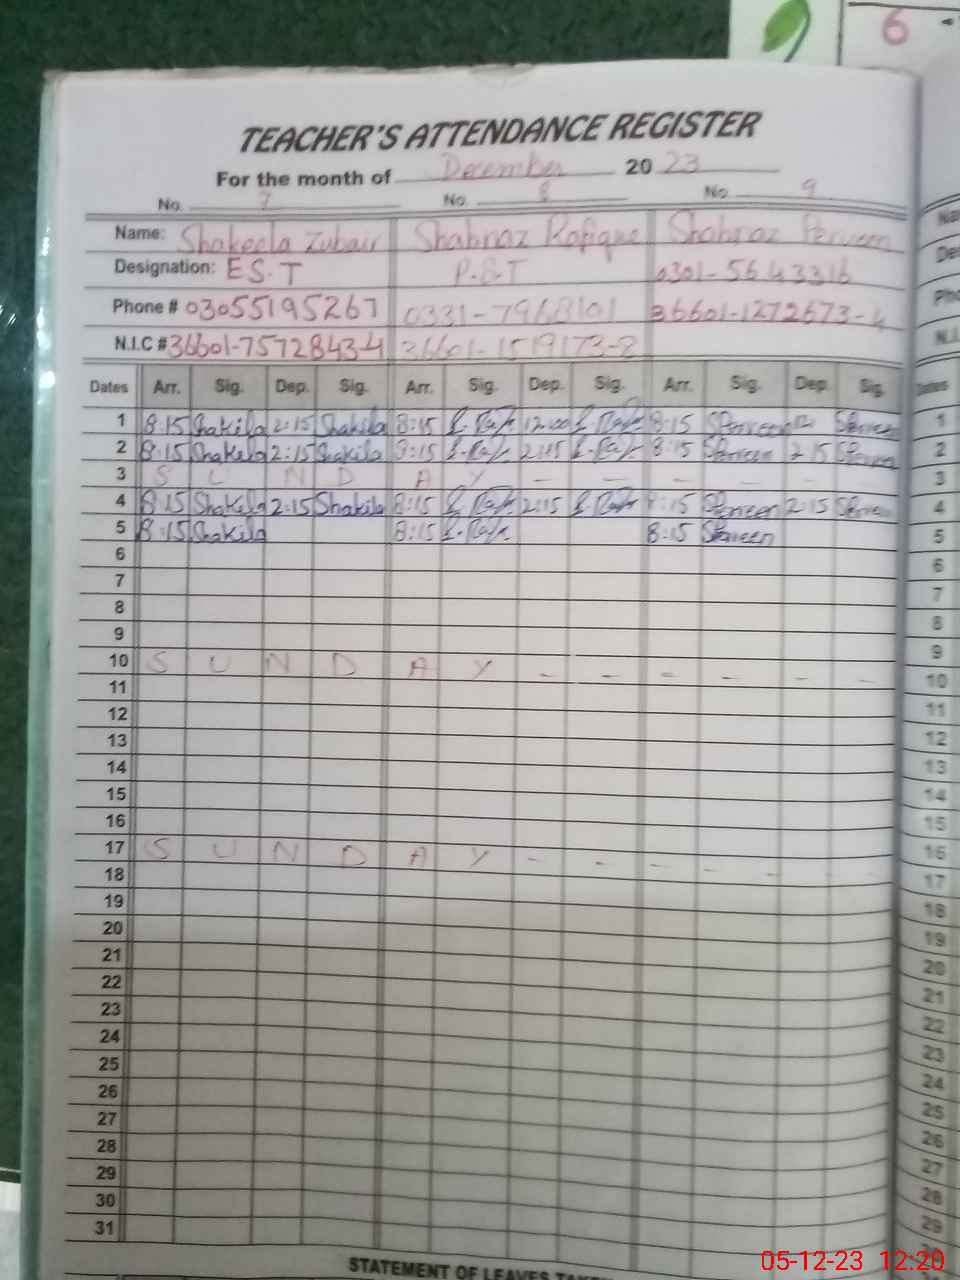 6
TEACHER'S ATTENDANCE REGISTER
For the month of December 2023
No. 7 No. 8 No. 9
Name: Shakeela Zubair Shahnaz Rafique Shahnaz Perveen
Designation: E S.T P.S.T 0301-5643316
Phone # 03055195267 0331-7968101 36601-1272673-4
N.I.C # 36601-7572843-4 36601-1519173-2
Dates Arr. Sig. Dep. Sig. Arr. Sig. Dep. Sig. Arr. Sig. Dep. Sig. Dates
1 8:15 Shakila 2:15 Shakila 8:15 12:00 8:15 SPerveen 12 SPerveen 1
2 8:15 Shakila 2:15 Shakila 8:15 2:15 8:15 SPerveen 2:15 SPerveen 2
3 S U N D A Y - - - - - - 3
4 8:15 Shakila 2:15 Shakila 8:15 2:15 8:15 SPerveen 2:15 SPerveen 4
5 8:15 Shakila 8:15 8:15 SPerveen 5
6 6
7 7
8 8
9 9
10 S U N D A Y - - - - - - 10
11 11
12 12
13 13
14 14
15 15
16 16
17 S U N D A Y - - - - - - 17
18 18
19 19
20 20
21 21
22 22
23 23
24 24
25 25
26 26
27 27
28 28
29 29
30
31
STATEMENT OF LEAVES
05-12-23 12:20